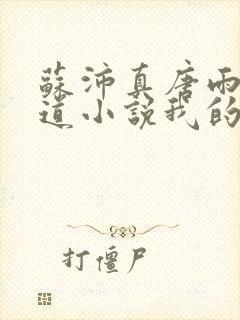 蘇沛真唐雨
道小說我的
打僵尸